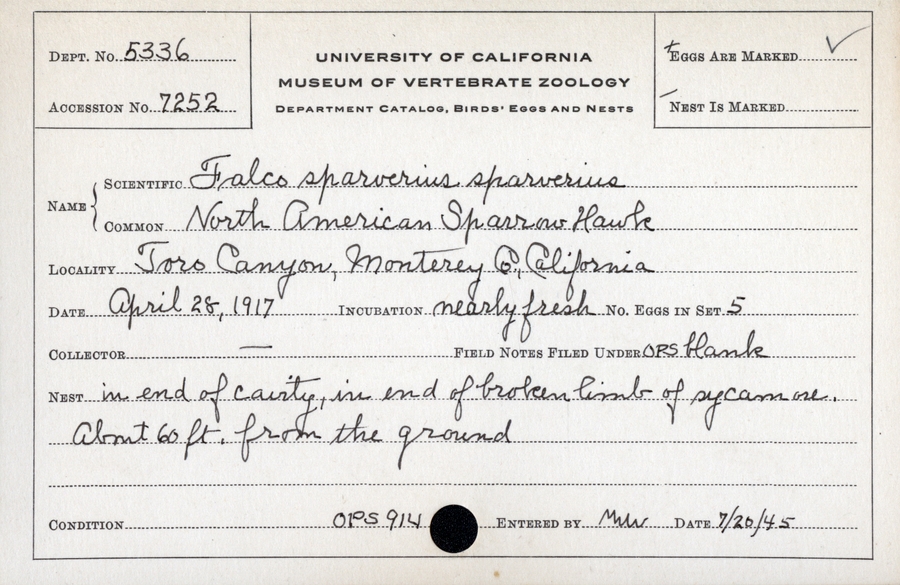 DEPT. No. 5336
UNIVERSITY OF CALIFORNIA
EGGS ARE MARKED ✓
MUSEUM OF VERTEBRATE ZOOLOGY
ACCESSION No. 7252
DEPARTMENT CATALOG, BIRDS' EGGS AND NESTS
NEST IS MARKED
NAME
SCIENTIFIC Falco sparverius sparverius
COMMON North American Sparrow Hawk
LOCALITY Toro Canyon, Monterey Co., California
DATE April 28, 1917 INCUBATION nearly fresh No. EGGS IN SET 5
COLLECTOR — FIELD NOTES FILED UNDER OPS blank
NEST in end of cavity, in end of broken limb of sycamore.
About 60 ft. from the ground
CONDITION OPS 914 ENTERED BY DATE 7/20/45